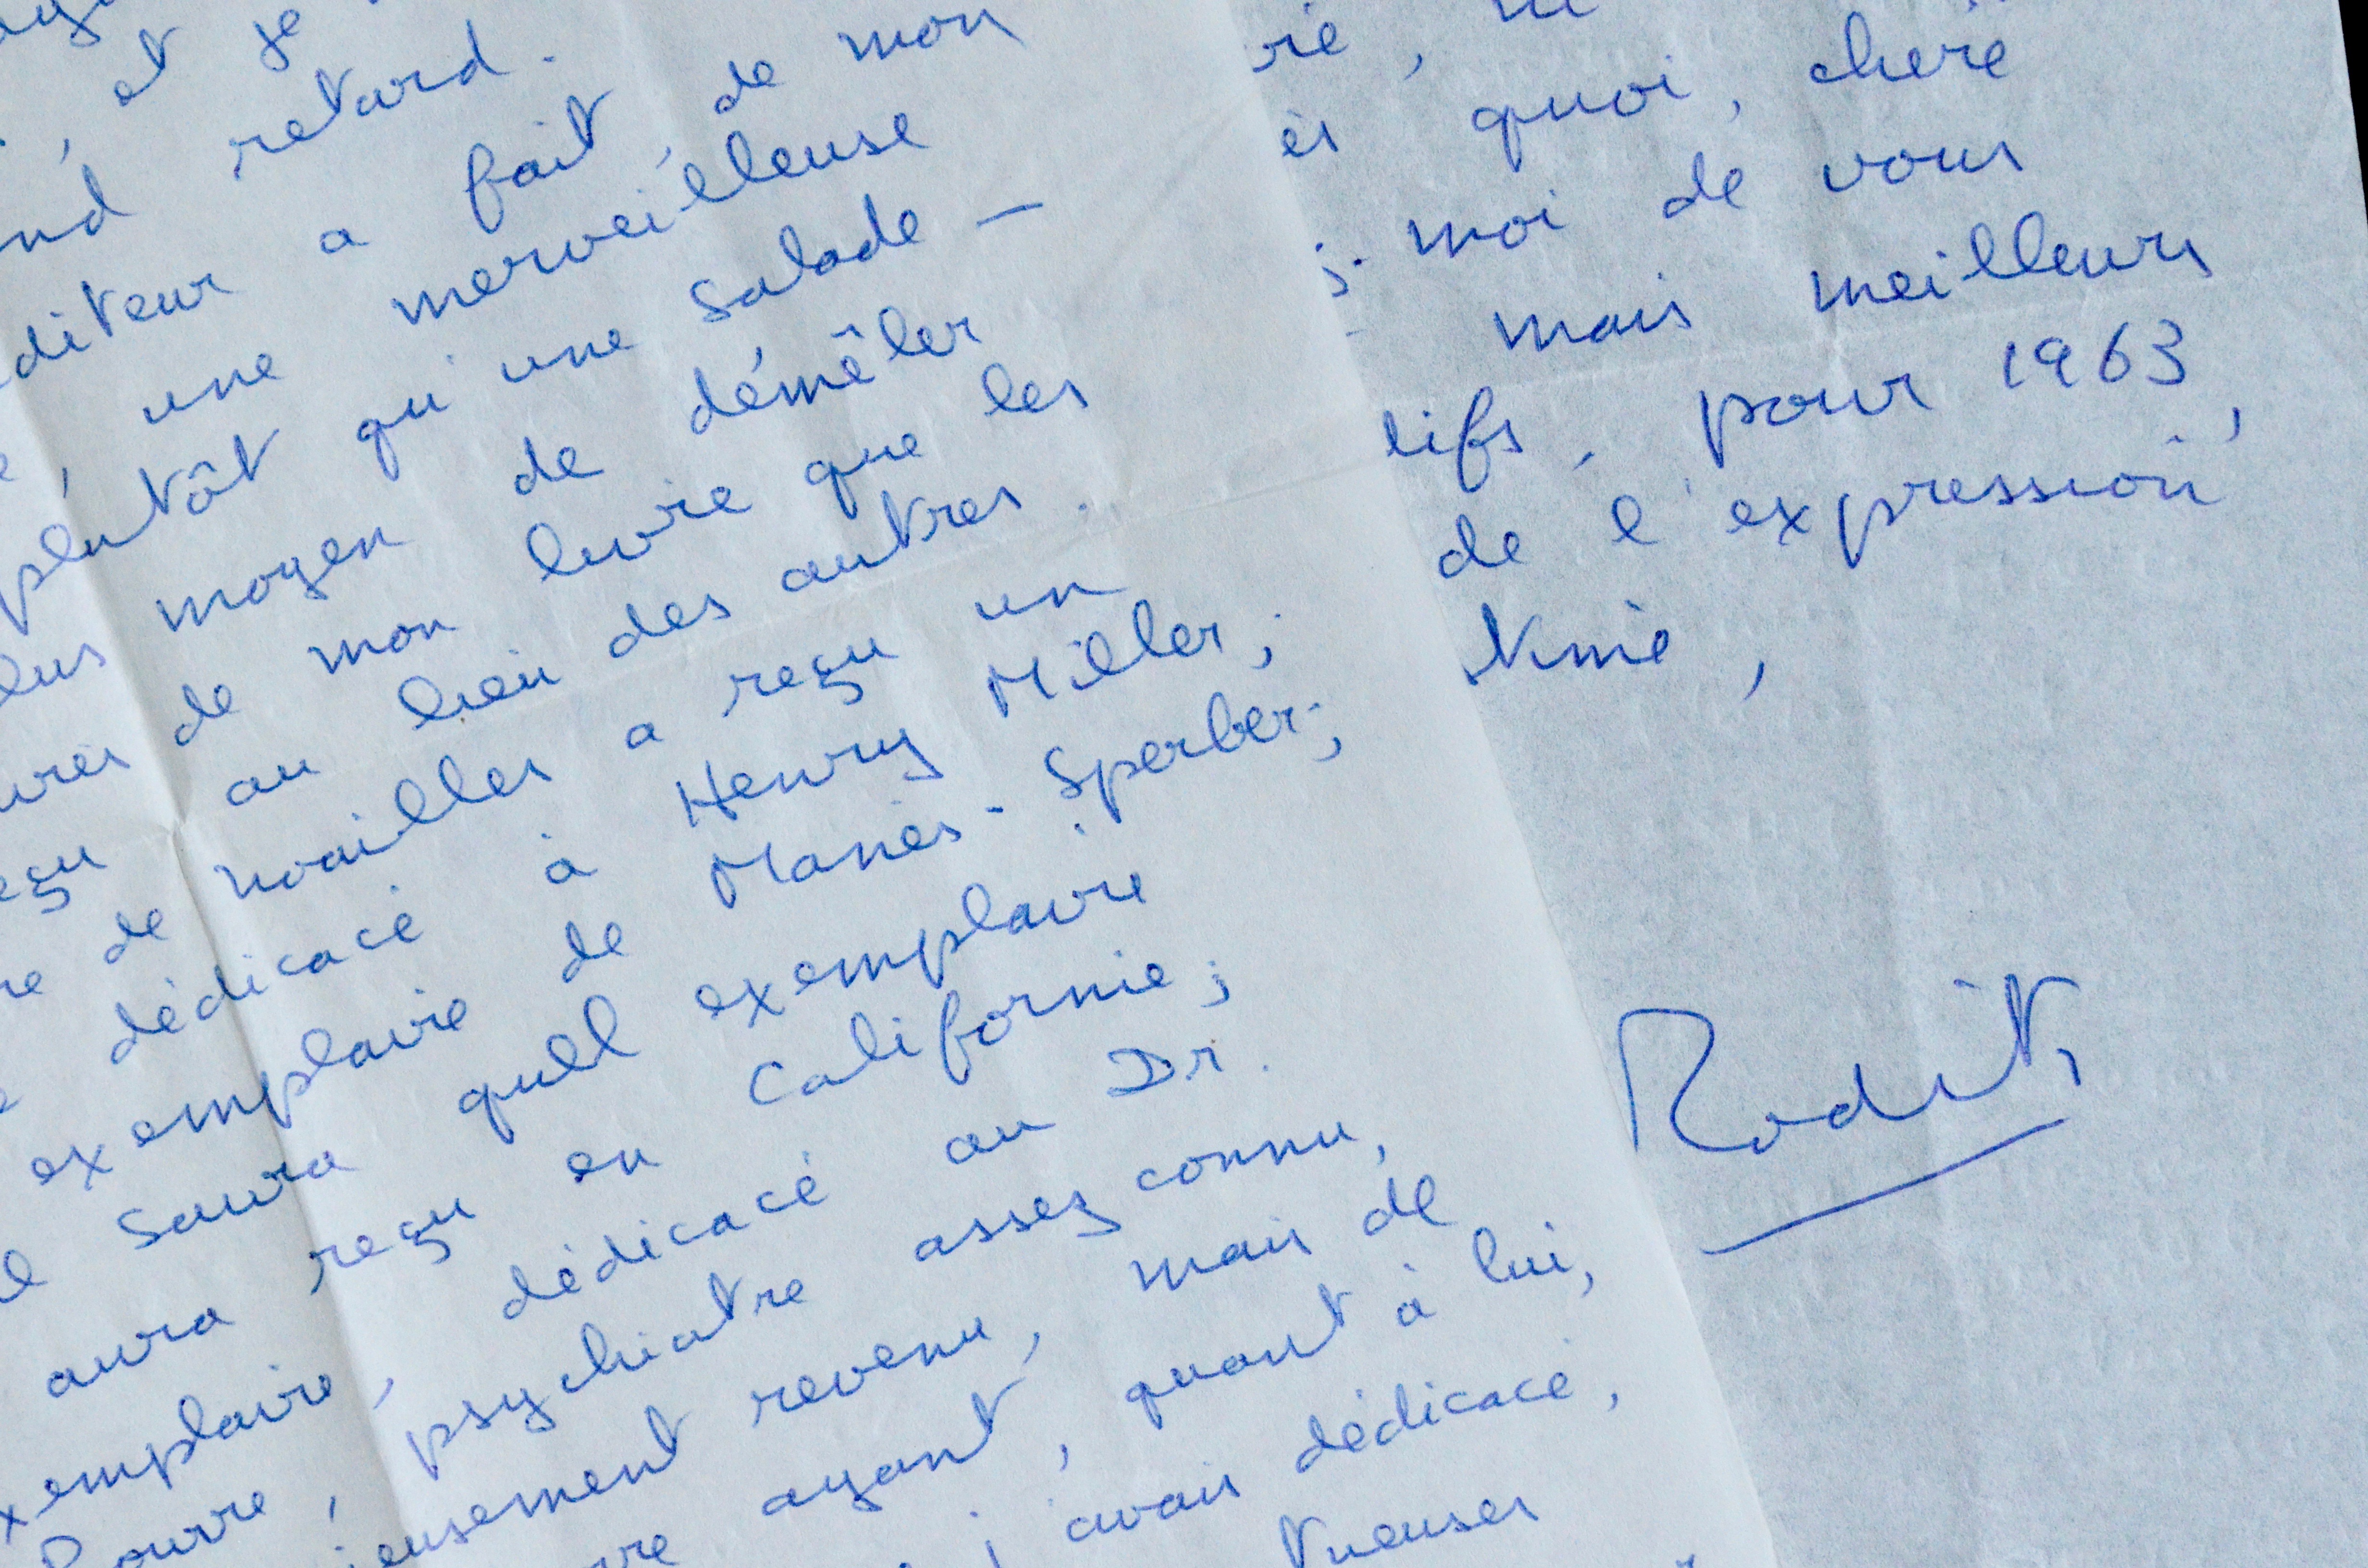 , et je
nd retard.
diteur a fait, de mon
, une merveilleuse
plutôt qu'une salade —
lus moyen de démêler
ures de mon livre que les
eçu au lieu des autres.
re de Noailles a reçu un
dédicacé à Henry Miller;
exemplaire de Manès-Sperber;
saura quel exemplaire
aura reçu en Californie;
xemplaire, dédicacé au Dr.
, psychiatre assez connu,
eusement revenu, mais de
vre ayant, quant à lui,
j'avais dédicacé,
tueuses
re,
ès quoi, chère
s-moi de vous
mais meilleurs
tifs, pour 1963,
de l'expression
time,
Roditi